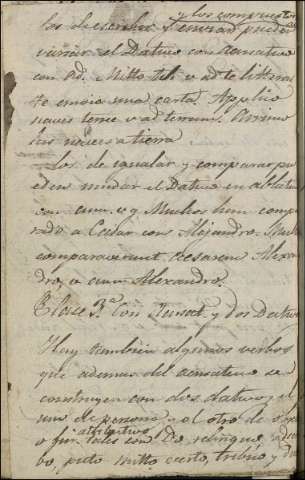 y los compuestos
los de escribir y enviar pueden
variar el Dativo con Acusativo
con Ad. Mitto tibi v ad te litteras
te envio una carta. Applico
naves terræ v ad terram. Arrimo
las naves a tierra
Los de igualar y comparar pu
eden mudar el Dativo en ablativo
con cum. v g Muchos han compa
rado a Cesar con Alejandro. Multi
comparaverunt Cesarem Alexan
dro, v cum Alexandro.
Clase 3.ª Con Acusat. y dos Dativos
Hay tambien algunos verbos
que ademas del acusativo se
construyen con dos dativos, el
uno de persona, y el otro de
atributivo
o fin. tales son Do, relinquo,
puto mitto verto, tribuo y